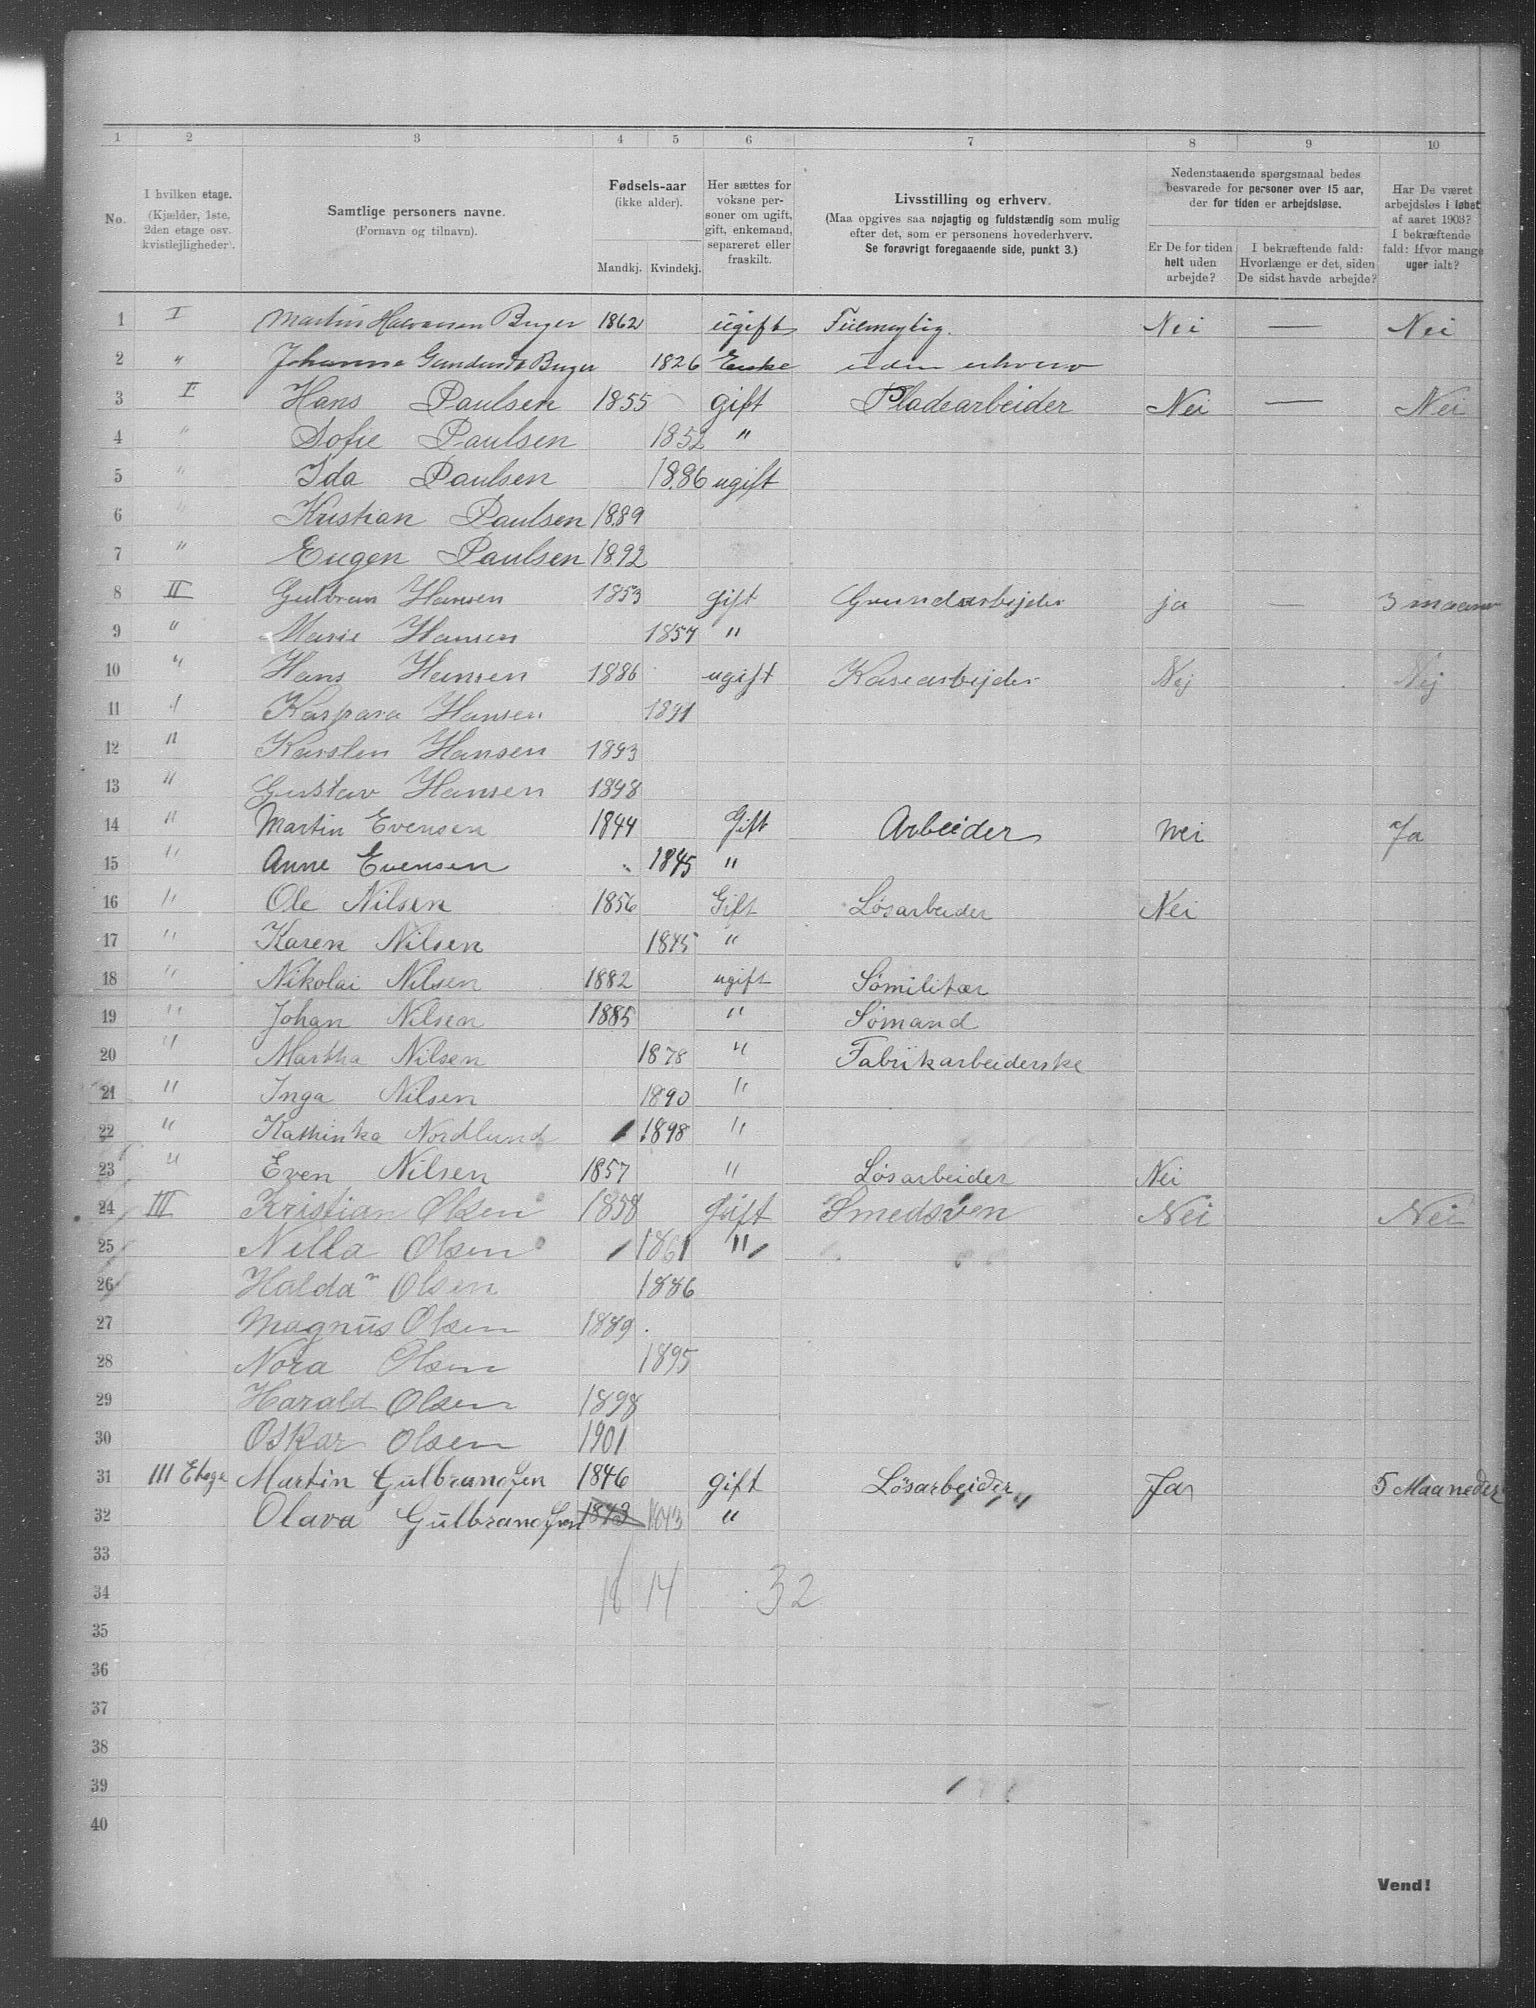 1 2 3 4 5 6 7 8 9 10
No.
I hvilken etage. (Kjælder, 1ste, 2den etage osv. kvistlejligheder).
Samtlige personers navne. (Fornavn og tilnavn).
Fødsels-aar (ikke alder). Mandkj. Kvindekj.
Her sættes for voksne personer om ugift, gift, enkemand, separeret eller fraskilt.
Livsstilling og erhverv. (Maa opgives saa nøjagtig og fuldstændig som mulig efter det, som er personens hovederhverv. Se forøvrigt foregaaende side, punkt 3.)
Nedenstaaende spørgsmaal bedes besvarede for personer over 15 aar, der for tiden er arbejdsløse.
Er De for tiden helt uden arbejde?
I bekræftende fald: Hvorlænge er det, siden De sidst havde arbejde?
Har De været arbejdsløs i løbet af aaret 1903? I bekræftende fald: Hvor mange uger ialt?
1 I Martin Halvorsen 1862 ugift Nei — Nei
2 " Johanne 1826 Enke uden erhverv
3 II Hans Paulsen 1855 gift Pladearbeider Nei — Nei
4 " Sofie Paulsen 1852 "
5 " Ida Paulsen 1886 ugift
6 " Kristian Paulsen 1889
7 " Eugen Paulsen 1892
8 II Gulbran Hansen 1853 gift Grundarbejder ja — 3 maaner
9 " Marie Hansen 1857 "
10 " Hans Hansen 1886 ugift Nej Nej
11 " Kaspara Hansen 1891
12 " Karsten Hansen 1893
13 " Gustav Hansen 1898
14 " Martin Evensen 1844 Gift Arbeider Nei Ja
15 " Anne Evensen 1845 "
16 " Ole Nilsen 1856 Gift Løsarbeider Nei
17 " Karen Nilsen 1845 "
18 " Nikolai Nilsen 1882 ugift Sømilitær
19 " Johan Nilsen 1885 " Sømand
20 " Martha Nilsen 1878 " Fabrikarbeiderske
21 " Inga Nilsen 1890 "
22 " Kathinka Nordlund 1898 "
23 " Even Nilsen 1857 " Løsarbeider Nei
24 III Kristian Olsen 1858 Gift Smedsven Nei Nei
25 Nella Olsen 1861 "
26 Haldan Olsen 1886
27 Magnus Olsen 1889
28 Nora Olsen 1895
29 Harald Olsen 1898
30 Oskar Olsen 1901
31 III Etage Martin Gulbrandsen 1846 gift Løsarbeider Ja 5 Maaneder
32 Olava Gulbrandsen 1843 1843 "
33
34 14 32
35
36
37
38
39
40
Vend!